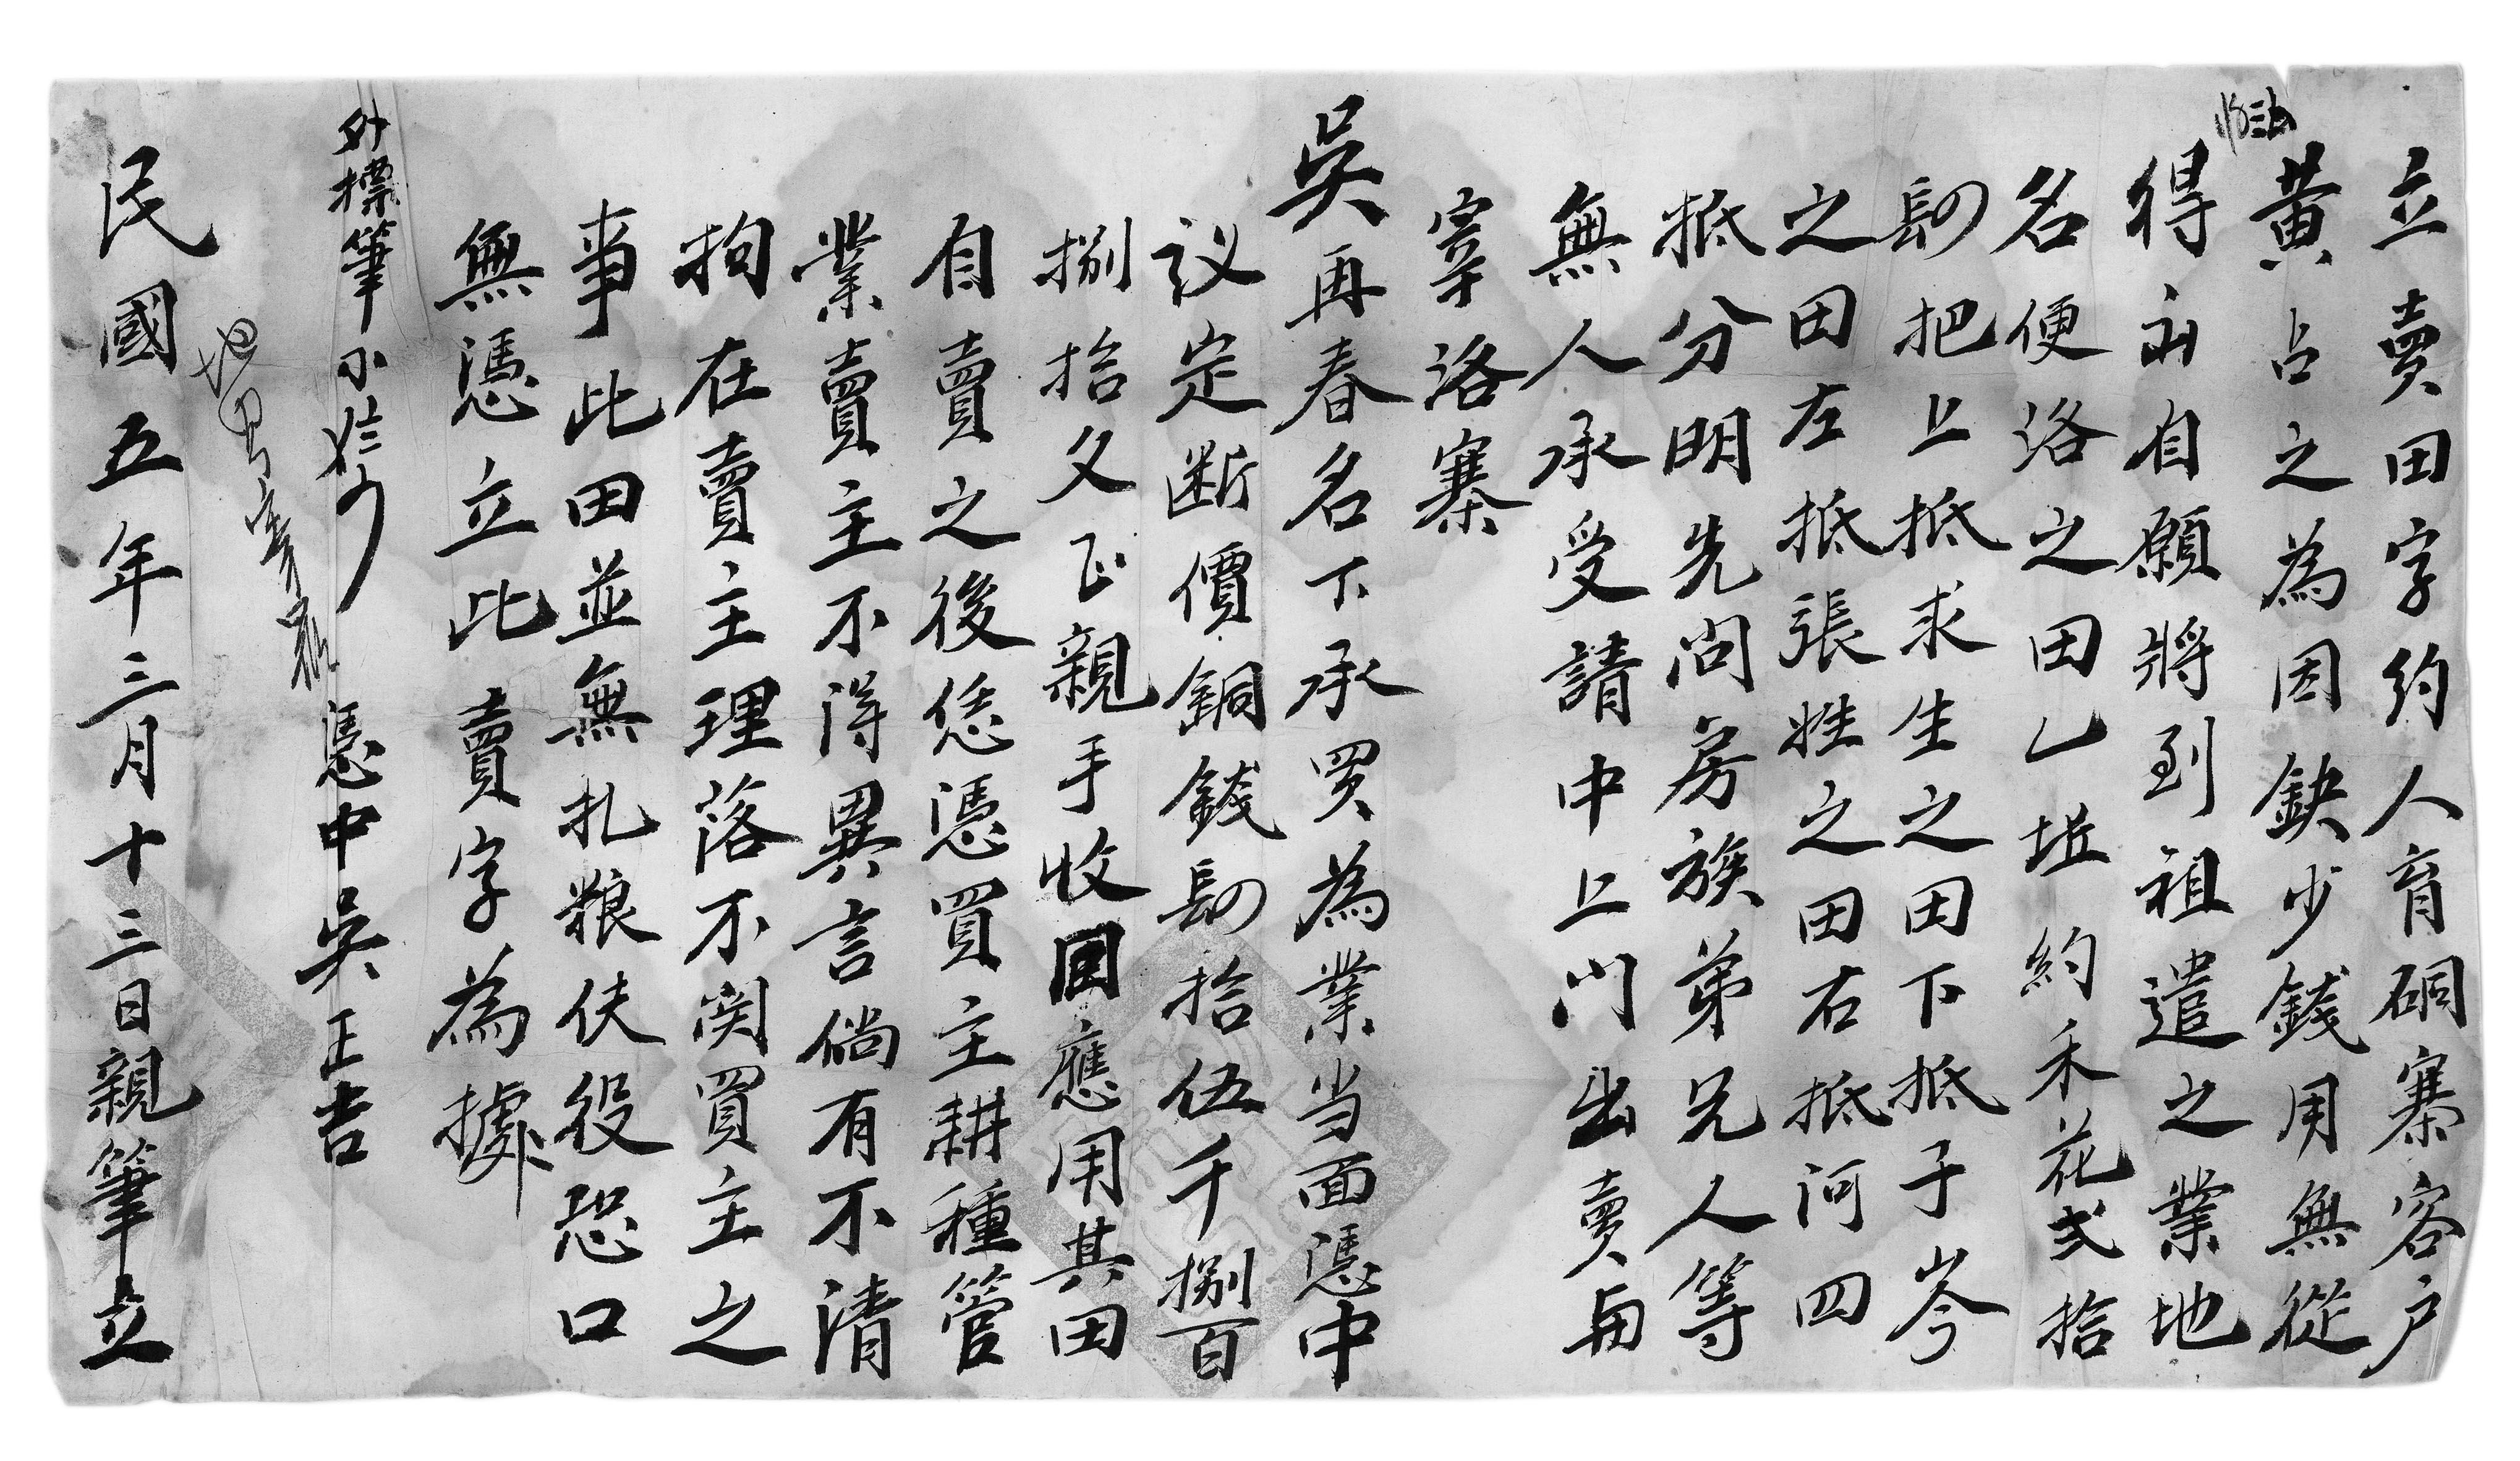 立賣田字約人育硐寨客户
黄占之為因缺少錢用無從
得出自願將到祖遣之業地
名便洛之田乙坵約禾花弍拾
卽把上抵求生之田下抵子岑
之田左抵張姓之田右抵河四
抵分明先问房族弟兄人等
無人承受請中上门出賣与
宰洛寨
吳再春名下承買為業当面憑中
议定断價銅錢卽拾伍千捌百
捌拾文正親手收囬應用其田
自賣之後恁憑買主耕種管
業賣主不淂異言倘有不清
拘在賣主理落不関買主之
事此田並無扎粮伕役恐口
無憑立此賣字為據
外標筆不
憑中吳正吉
民國五年三月十三日親筆立